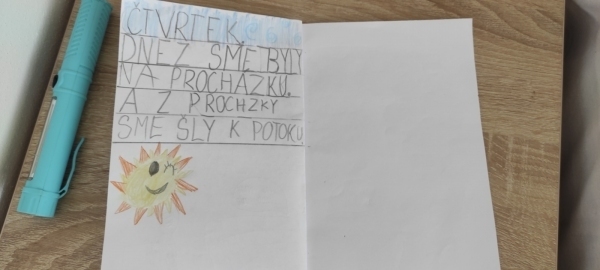 ČTVRTEK.
DNEZ SME BYLY
NA PROCHÁZKU.
A Z PROCHZKY
SME ŠLY K POTOKU